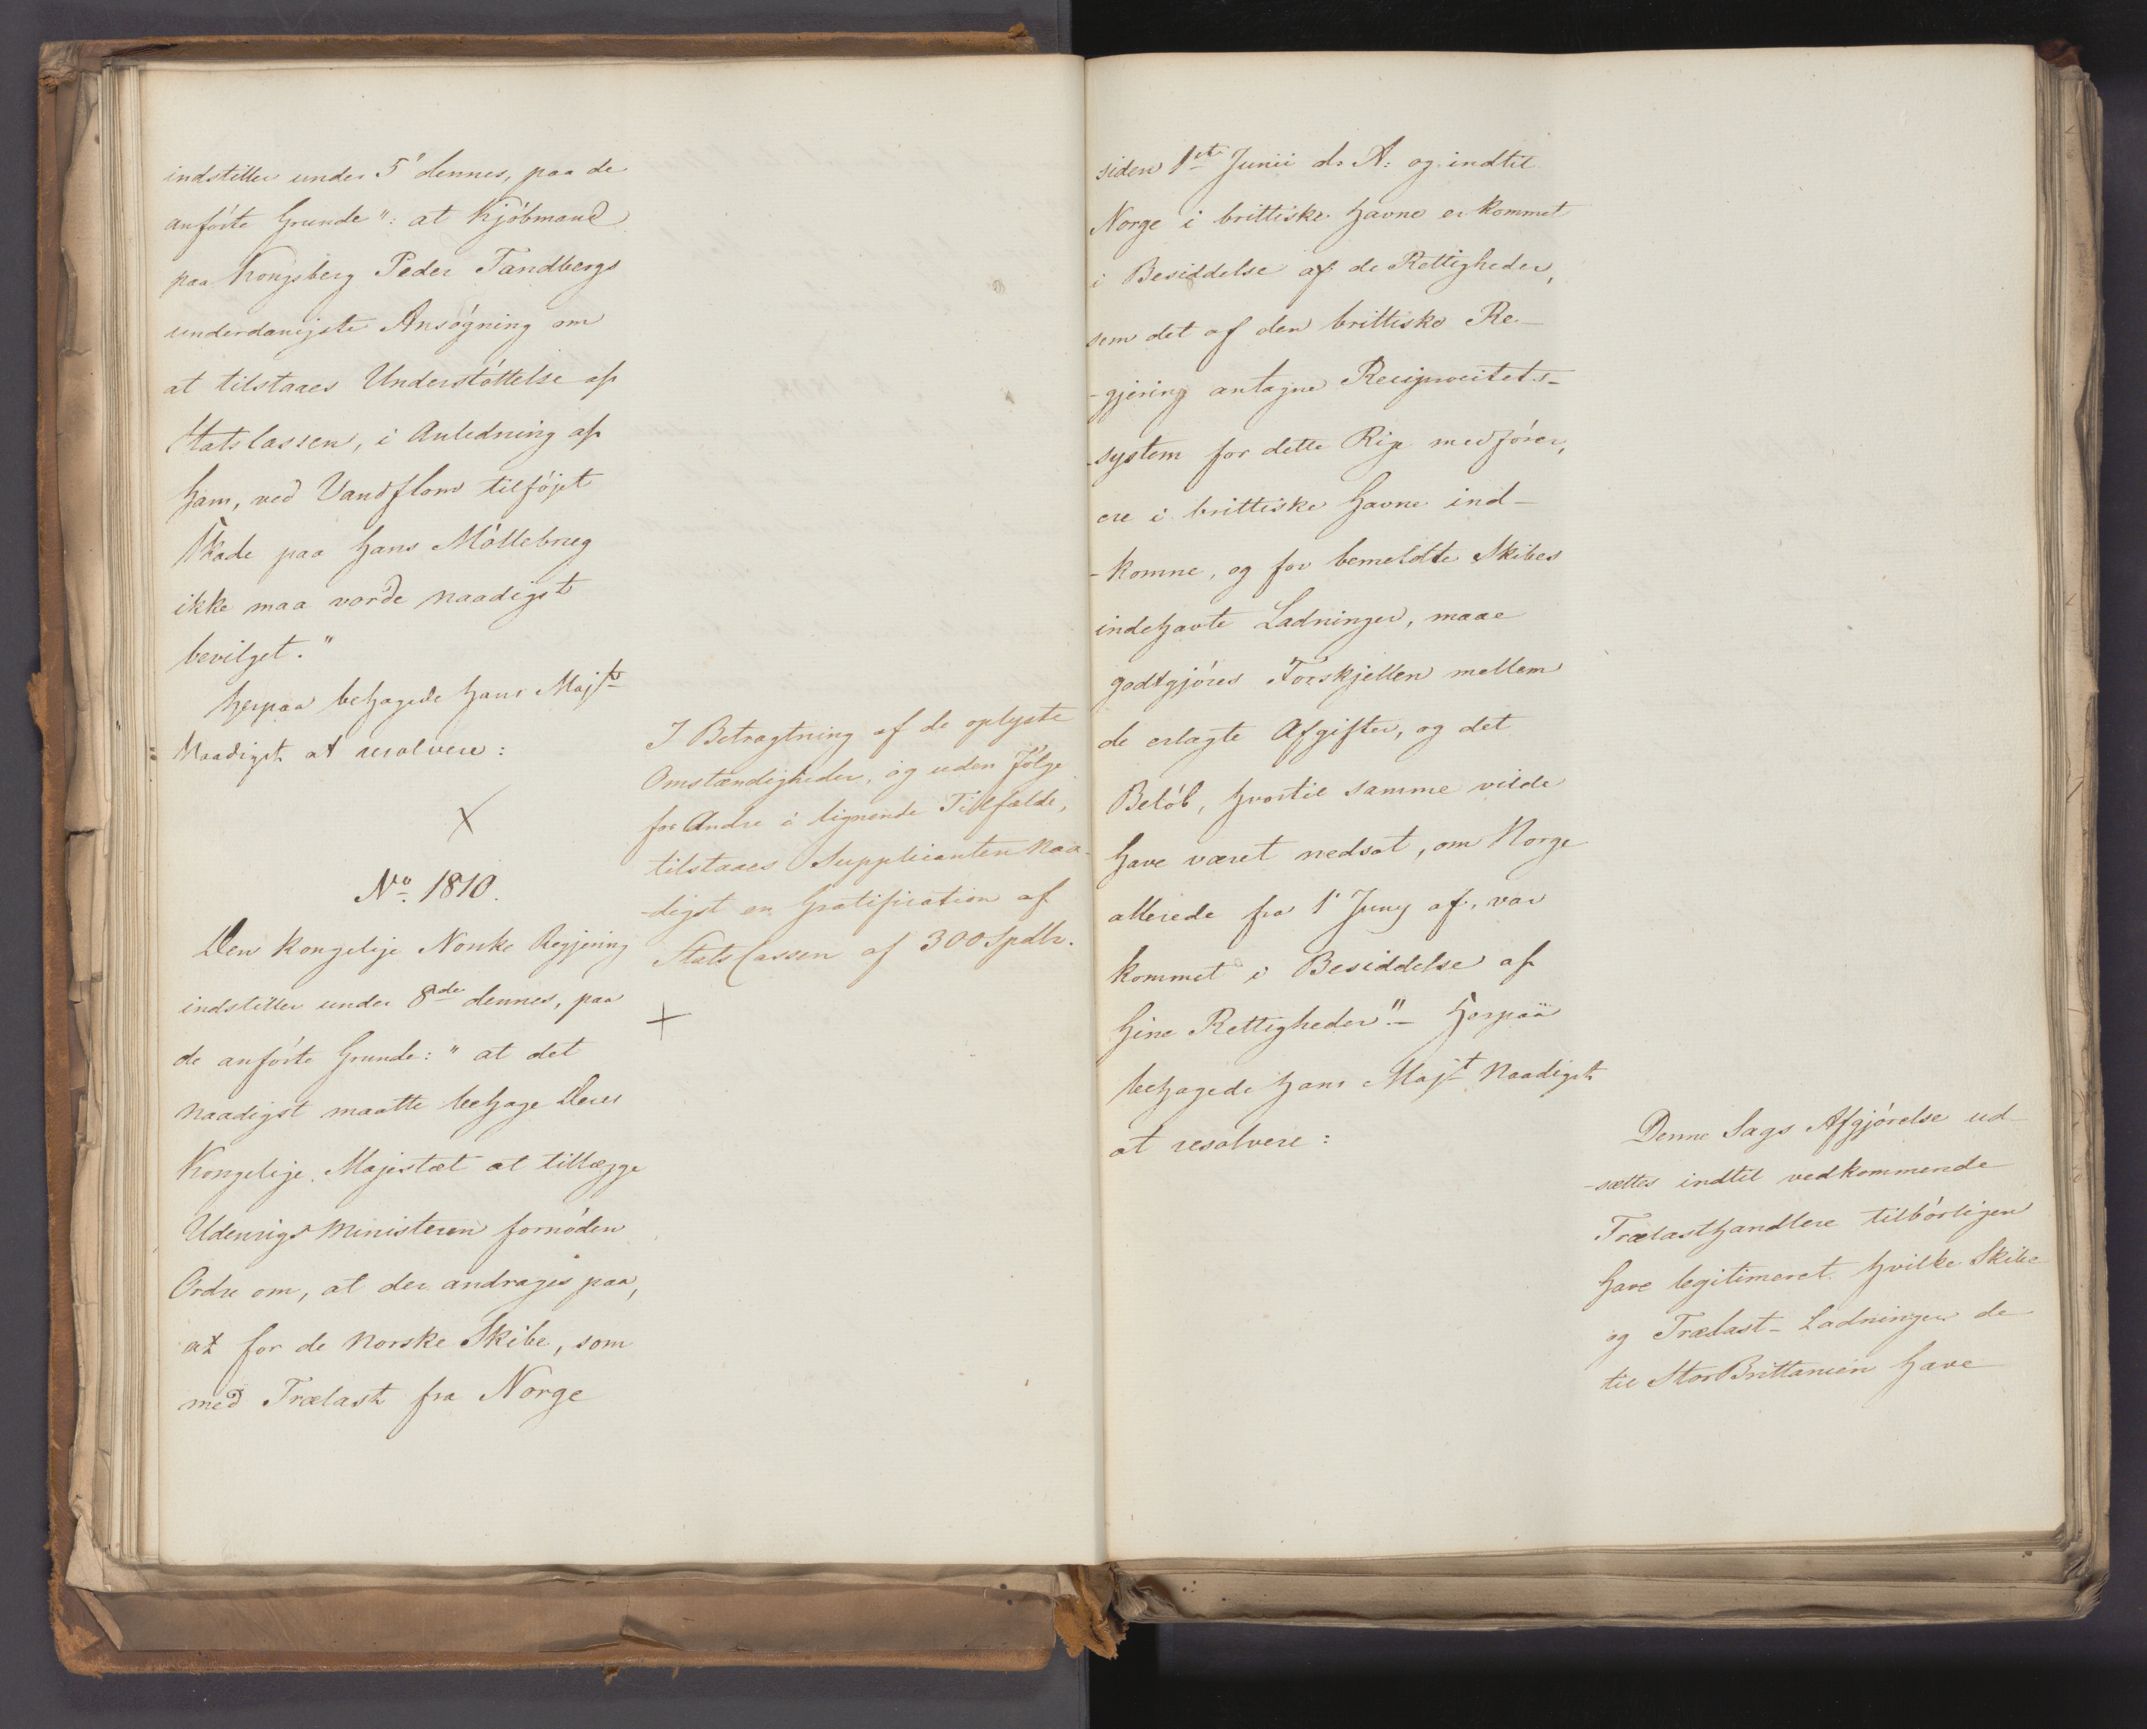 indstiller under 5' dennes, paa de
anførte Grunde": at Kjøbmand
paa Kongsberg Peder Tandbergs
underdanigste Ansøgning om
at tilstaaes Understøttelse af
Statscassen, i Anledning af
ham, ved Vandflom tilføjet
Skade paa hans Møllebrug
ikke maa vorde naadigst
bevilget."
Herpaa behagede Hans Majt
Naadigst at resolvere:
X
I Betragtning af de oplyste
Omstændigheder, og uden Følge
for Andre i lignende Tilfælde,
tilstaaes Supplicanten Naa-
-digst en Gratification af
Stats Cassen af 300 Spdlr.
+
No. 1810.
Den kongelige Norske Regjering
indstiller under 8de dennes, paa
de anførte Grunde: "at det
naadigst maatte behage Deres
Kongelige Majestæt at tillægge
Udenrigsministeren fornøden
Ordre om, at der andrages paa,
at for de norske Skibe, som
med Trælast fra Norge
siden 1ste Junii d. A: og indtil
Norge i brittiske Havne er kommet
i Besiddelse af de Rettigheder,
som det af den brittiske Re-
-gjering antagne Reciprocitets-
-system for dette Rige medfører,
ere i brittiske Havne ind-
-komne, og for bemeldte Skibes
indehavte Ladninger, maae
godtgjøres Forskjellen mellem
de erlagte Afgifter, og det
Beløb, hvortil samme vilde
have været nedsat, om Norge
allerede fra 1' Juny af, var
kommet i Besiddelse af
hine Rettigheder".- Herpaa
behagede Hans Majt Naadigst
at resolvere:
Denne Sags Afgjørelse ud-
-sættes indtil vedkommende
Trælasthandlere tilbørligen
have legitimeret hvilke Skibe
og Trælast-Ladninger de
til StorBrittanien have